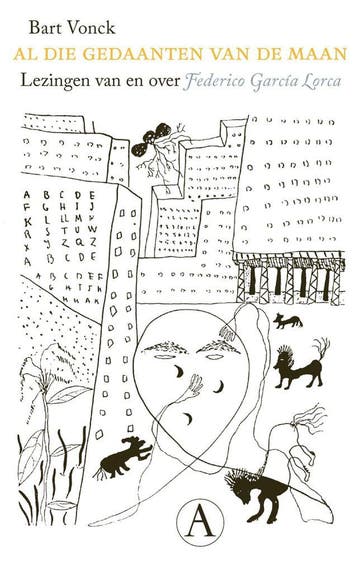 Bart Vonck
AL DIE GEDAANTEN VAN DE MAAN
Lezingen van en over Federico García Lorca
A B C D E
F G H I J
K L LL M N
R S T U V
X Y Z Q Z
A B C D E
A